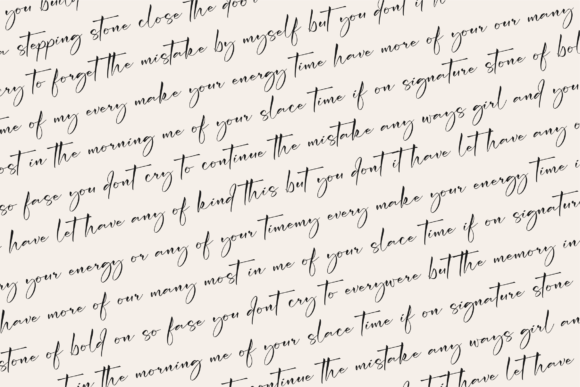 you build
stepping stone close the door
cry to forget the mistake by myself but you dont it
me of my every make your energy time have more of your our many
ost in the morning me of your slace time if on signature stone of bol
so fase you dont cry to continue the mistake any ways girl and you
have let have any of kind this but you dont it have let have any o
ry your energy or any of your timemy every make your energy time i
have more of our many most in me of your slace time if on signatur
stone of bold on so fase you dont cry to everywere but the memory in
in the morning me of your slace time if on signature stone
continue the mistake any ways girl an
it have let have